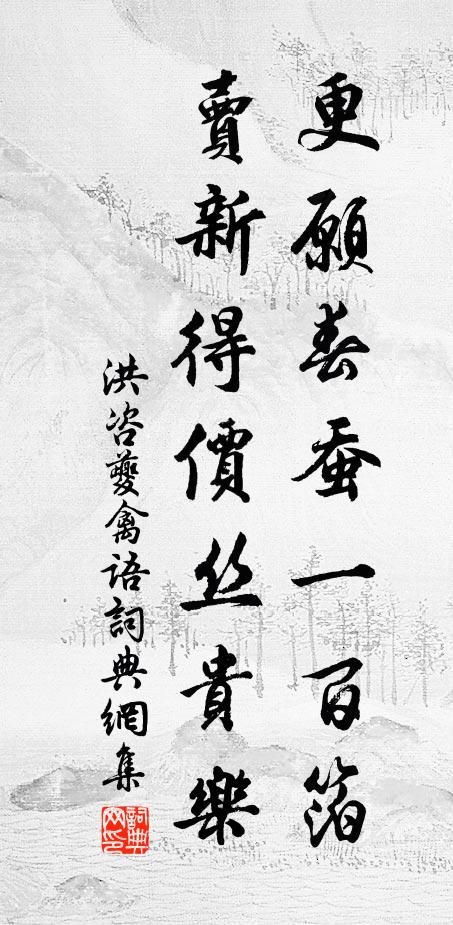 更願春蚕一百箔
賣新得價丝貴樂
洪咨夔禽语詞典網集
詞典网印